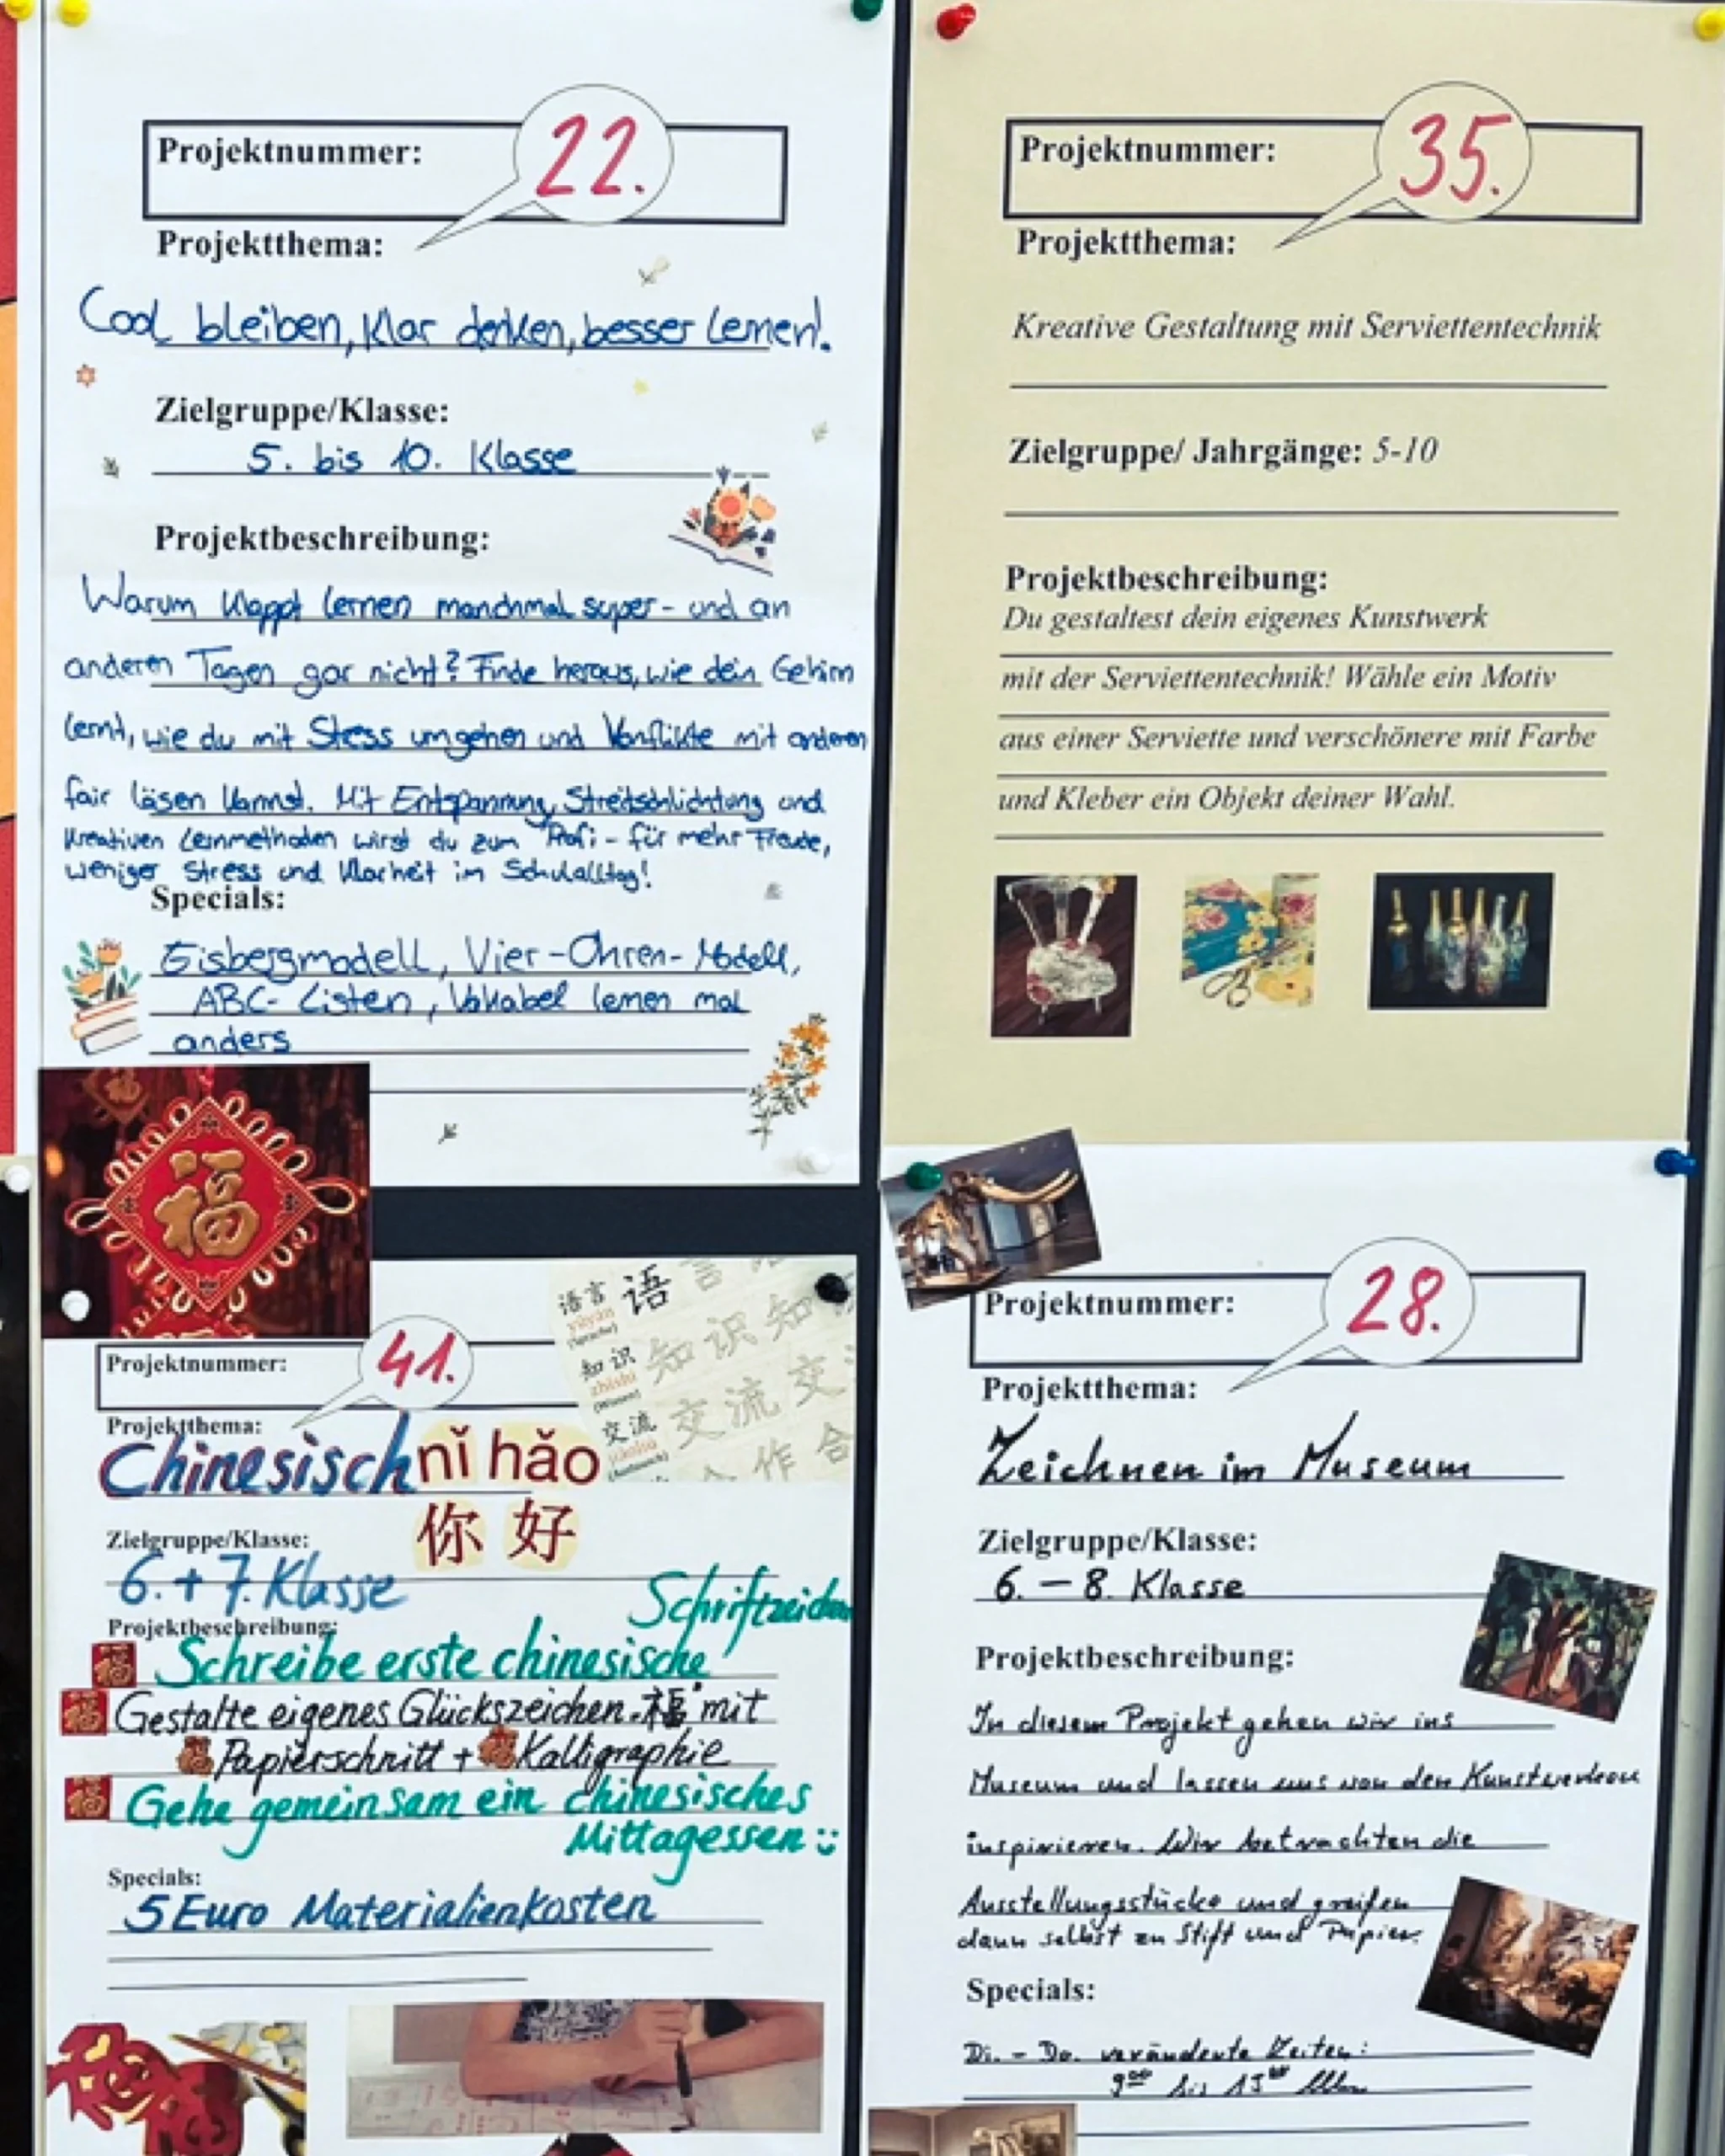 Projektnummer: 22.
Projektthema:
Cool bleiben, klar denken, besser lernen!
Zielgruppe/Klasse:
5. bis 10. Klasse
Projektbeschreibung:
Warum klappt lernen manchmal super - und an
anderen Tagen gar nicht? Finde heraus, wie dein Gehirn
lernt, wie du mit Stress umgehen und Konflikte mit anderen
fair läsen kannst. Mit Entspannung, Streitschlichtung und
kreativen Lernmethoden wirst du zum Profi - für mehr Freude,
weniger Stress und Klarheit im Schulalltag!
Specials:
Eisbergmodell, Vier-Ohren-Modell,
ABC-Listen, Vokabel lernen mal
anders
Projektnummer: 35.
Projektthema:
Kreative Gestaltung mit Serviettentechnik
Zielgruppe/ Jahrgänge: 5-10
Projektbeschreibung:
Du gestaltest dein eigenes Kunstwerk
mit der Serviettentechnik! Wähle ein Motiv
aus einer Serviette und verschönere mit Farbe
und Kleber ein Objekt deiner Wahl.
福
语言 语 言
yǔyán
(Sprache)
知识 知 识 知
zhīshi
(Wissen)
交流 交 流 交
jiāoliú
(Austausch)
作 合
Projektnummer: 41.
Projektthema:
Chinesisch nǐ hǎo
你 好
Zielgruppe/Klasse:
6. + 7. Klasse
Projektbeschreibung:
Schreibe erste chinesische Schriftzeichen
Gestalte eigenes Glückszeichen „福" mit
Papierschnitt + Kalligraphie
Gehe gemeinsam ein chinesisches
Mittagessen
Specials:
5 Euro Materialienkosten
Projektnummer: 28.
Projektthema:
Zeichnen im Museum
Zielgruppe/Klasse:
6. – 8. Klasse
Projektbeschreibung:
In diesem Projekt gehen wir ins
Museum und lassen uns von den Kunstwerken
inspirieren. Wir betrachten die
Ausstellungsstücke und greifen
dann selbst zu Stift und Papier.
Specials:
Di. – Do. veränderte Zeiten:
9⁰⁰ bis 13⁰⁰ Uhr